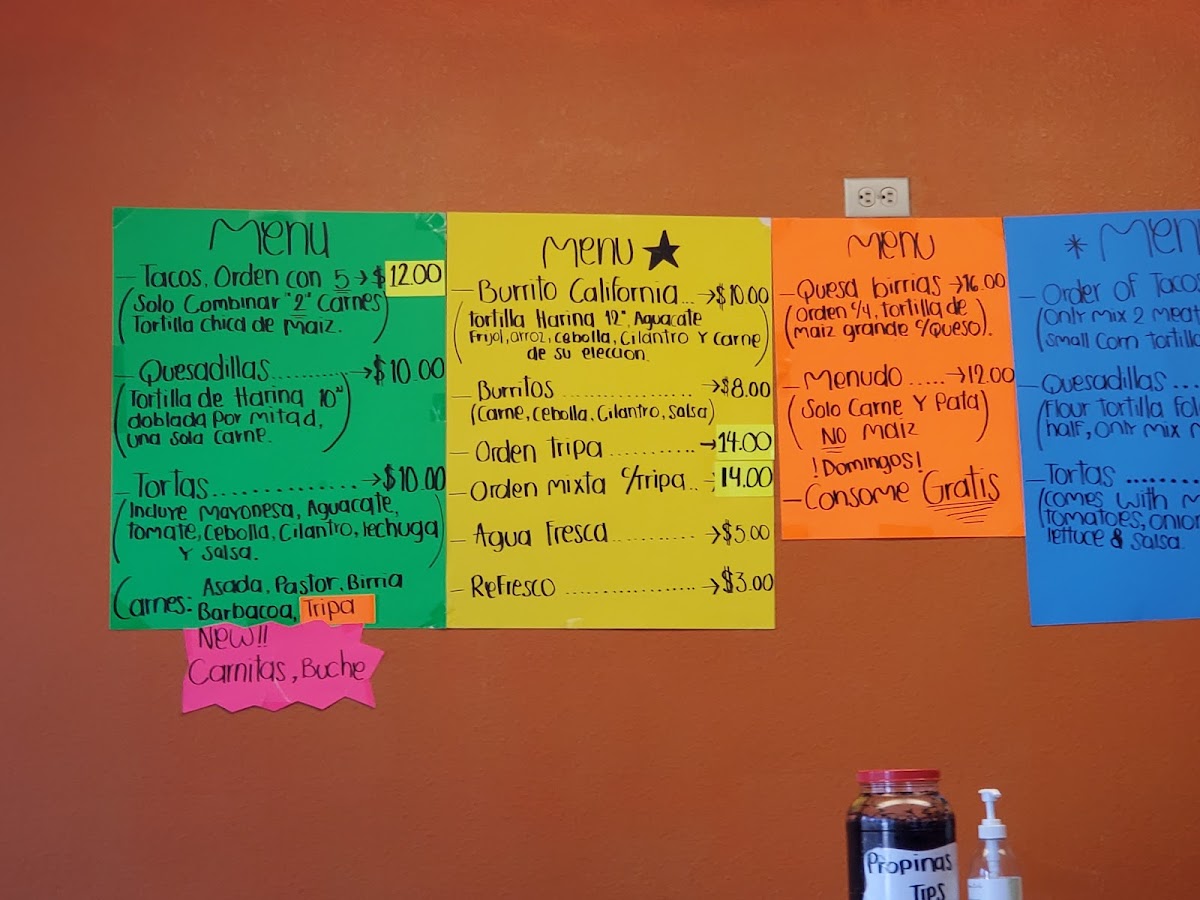 Menu
- Tacos, Orden con 5 → $ 12.00
(Solo Combinar "2" Carnes
Tortilla chica de Maiz.)
- Quesadillas........... → $10.00
(Tortilla de Harina 10"
doblada por mitad,
una sola carne.)
- Tortas............... → $10.00
(Incluye Mayonesa, Aguacate,
tomate, Cebolla, Cilantro, lechuga
Y Salsa.)
Carnes: Asada, Pastor, Birria
Barbacoa, Tripa
New!!
Carnitas, Buche
Menu ★
- Burrito California... → $10.00
(tortilla Harina 12", Aguacate
Frijol, arroz, cebolla, Cilantro Y Carne
de su eleccion.)
- Burritos ................. → $8.00
(Carne, Cebolla, Cilantro, Salsa)
- Orden tripa .......... → 14.00
- Orden mixta c/tripa.. → 14.00
- Agua Fresca.......... → $5.00
- Refresco ................. → $3.00
Menu
- Quesa birrias → 16.00
(Orden c/4, tortilla de
maiz grande c/Queso).
- Menudo ...... → 12.00
(Solo Carne Y Pata)
NO maiz
!Domingos!
- Consome Gratis
* Menu
- Order of Tacos
(Only mix 2
Small Corn
- Quesadillas ...
(Flour Tortilla
half, only mix
- Tortas ........
(comes with
tomatoes,
lettuce & Salsa.
Propinas
Tips